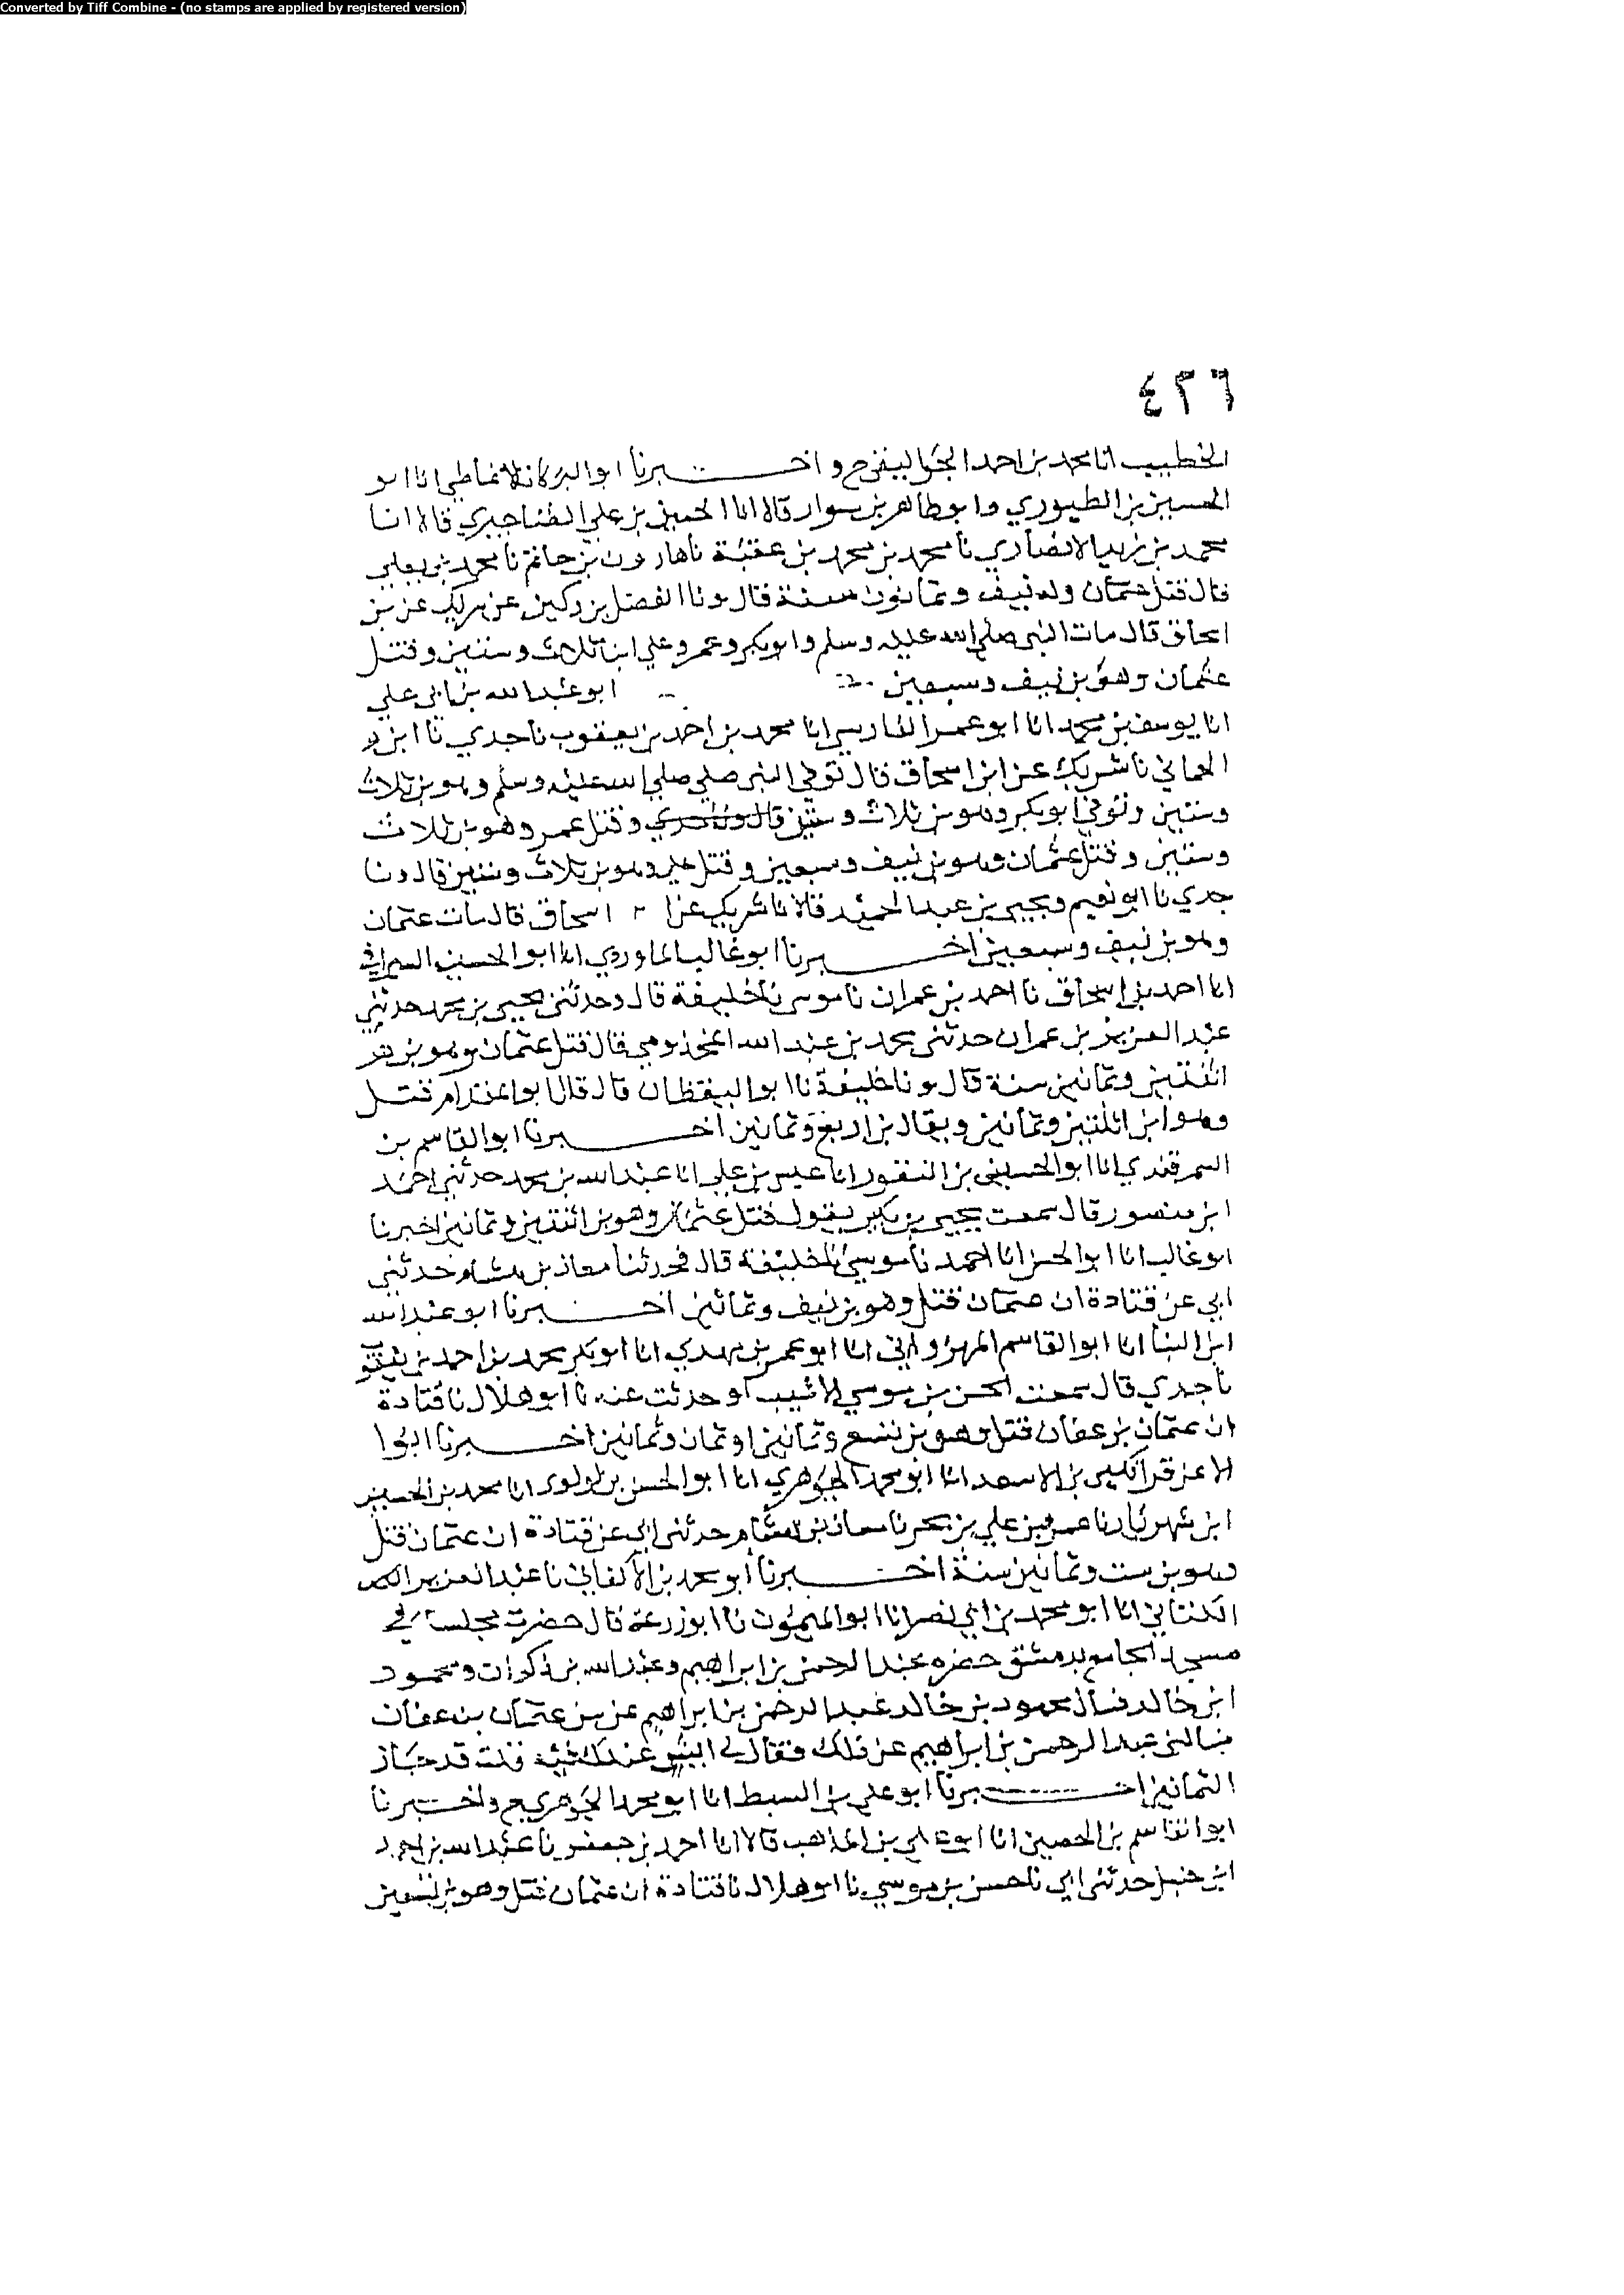 Converted by Tiff Combine - (no stamps are applied by registered version)
٤٢٦
الخطيب انا محمد بن احمد الجواليقي ح واخبرنا ابو البركات الانماطي انا ابو
الحسين بن الطيوري وابو طاهر بن سوار قالا انا الحسين بن علي الطناجيري قالا انا
محمد بن زيد الانصاري نا محمد بن محمد بن عقبة نا هارون بن حاتم نا محمد بن يعلي
قال قتل عثمان وله نيف وثمانون سنة قال ونا الفضل بن دكين عن شريك عن بن
اسحاق قال مات النبي صلى الله عليه وسلم وابو بكر وعمر وعلي ابنا ثلاث وستين وقتل
عثمان وهو بن نيف وسبعين ابو عبد الله بن ابي علي
انا يوسف بن محمد انا ابو عمر الفارسي انا محمد بن احمد بن يعقوب نا جدي نا ابن
الحماني نا شريك عن ابن اسحاق قال توفي النبي صلي صلي الله عليه وسلم وهو بن ثلاث
وستين وتوفي ابو بكر وهو بن ثلاث وستين قال ونا جدي وقتل عمر وهو بن ثلاث
وستين وقتل عثمان وهو بن نيف وسبعين وقتل علي وهو بن ثلاث وستين قال ونا
جدي نا ابو نعيم ويحيى بن عبد الحميد قالا نا شريك عن ا اسحاق قال مات عثمان
وهو بن نيف وسبعين اخبرنا ابو غالب الماوردي انا ابو الحسين السيرافي
انا احمد بن اسحاق نا احمد بن عمران نا موسى نا خليفة قال وحدثني يحيى بن محمد حدثني
عبد العزيز بن عمران حدثني محمد بن عبد الله المخزومي قال قتل عثمان وهو بن
اثنتين وثمانين سنة قال ونا خليفة نا ابو اليقظان قال قال ابو المقدام قتل
وهو ابن اثنتين وثمانين ويقال بن اربع وثمانين اخبرنا ابو القاسم بن
السمرقندي انا ابو الحسين بن النقور انا عيسى بن علي انا عبد الله بن محمد حدثني احمد
ابن منصور قال سمعت يحيى بن بكير يقول قتل عثمان وهو بن اثنتين وثمانين اخبرنا
ابو غالب انا ابو الحسن انا احمد نا موسي نا خليفة قال فحدثنا معاذ بن هشام حدثني
ابي عن قتادة ان عثمان قتل وهو بن نيف وثمانين اخبرنا ابو عبد الله
ابن البنا انا ابو القاسم المهرواني انا ابو عمر بن مهدي انا ابو بكر محمد بن احمد بن يعقوب
نا جدي قال سمعت الحسن بن موسي الاشيب او حدثت عنه نا ابو هلال نا قتادة
ان عثمان بن عفان قتل وهو بن تسع وثمانين او ثمان وثمانين اخبرنا ابوا
الاعز قراتكين بن الاسعد انا ابو محمد الجوهري انا ابو الحسن بن لولو انا محمد بن الحسين
ابن شهريار نا عمرو بن علي بن بحر نا معاذ بن هشام حدثني ابي عن قتادة ان عثمان قتل
وهو بن ست وثمانين سنة اخبرنا ابو محمد بن الاكفاني نا عبد العزيز
الكتاني انا ابو محمد بن ابي نصر انا ابو الميمون نا ابو زرعة قال حضرت مجلسا في
مسجد الجامع بدمشق حضره عبد الرحمن بن ابراهيم وعبد الله بن ذكوان ومحمود
ابن خالد فسال محمود بن خالد عبد الرحمن بن ابراهيم عن سن عثمان بن عفان
فسالني عبد الرحمن بن ابراهيم عن ذلك فقال لي ايش عندك فيه قلت قد جاز
الثمانين اخبرنا ابو علي بن السبط انا ابو محمد الجوهري ح واخبرنا
ابو القاسم بن الحصين انا ابو علي بن المذهب قالا انا احمد بن جعفر نا عبد الله بن احمد
ابن حنبل حدثني ابي نا حسن بن موسي نا ابو هلال نا قتادة ان عثمان قتل وهو بن تسعين